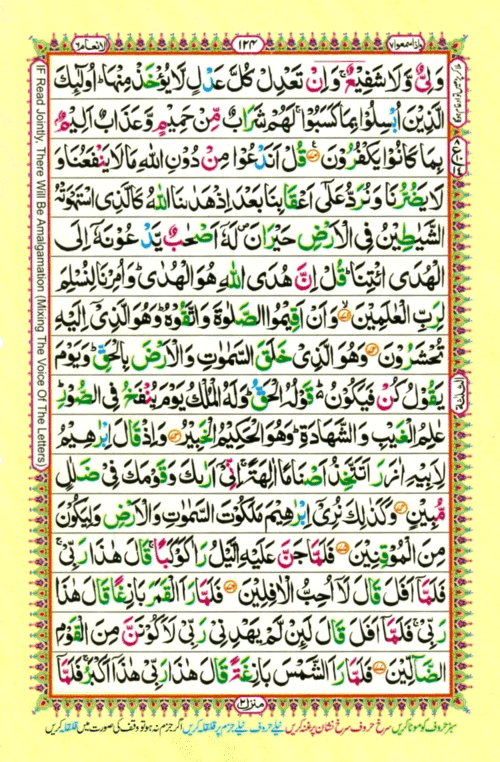 الانعام ٦
١٢٤
واذا سمعوا ٧
وَلِیٌّ وَّلَا شَفِیْعٌ ۚ وَاِنْ تَعْدِلْ كُلَّ عَدْلٍ لَّا یُؤْخَذْ مِنْهَا ؕ اُولٰٓىِٕكَ
الَّذِیْنَ اُبْسِلُوْا بِمَا كَسَبُوْا ۚ لَهُمْ شَرَابٌ مِّنْ حَمِیْمٍ وَّعَذَابٌ اَلِیْمٌۢ
بِمَا كَانُوْا یَكْفُرُوْنَ ۟ قُلْ اَنَدْعُوْا مِنْ دُوْنِ اللّٰهِ مَا لَا یَنْفَعُنَا وَ
لَا یَضُرُّنَا وَنُرَدُّ عَلٰۤی اَعْقَابِنَا بَعْدَ اِذْ هَدٰىنَا اللّٰهُ كَالَّذِی اسْتَهْوَتْهُ
الشَّیٰطِیْنُ فِی الْاَرْضِ حَیْرَانَ ۪ لَهٗۤ اَصْحٰبٌ یَّدْعُوْنَهٗۤ اِلَی
الْهُدَی ائْتِنَا ؕ قُلْ اِنَّ هُدَی اللّٰهِ هُوَ الْهُدٰی ؕ وَاُمِرْنَا لِنُسْلِمَ
لِرَبِّ الْعٰلَمِیْنَ ۟ وَاَنْ اَقِیْمُوا الصَّلٰوةَ وَاتَّقُوْهُ ؕ وَهُوَ الَّذِیْۤ اِلَیْهِ
تُحْشَرُوْنَ ۟ وَهُوَ الَّذِیْ خَلَقَ السَّمٰوٰتِ وَالْاَرْضَ بِالْحَقِّ ؕ وَیَوْمَ
یَقُوْلُ كُنْ فَیَكُوْنُ ؕ قَوْلُهُ الْحَقُّ ؕ وَلَهُ الْمُلْكُ یَوْمَ یُنْفَخُ فِی الصُّوْرِ ؕ
عٰلِمُ الْغَیْبِ وَالشَّهَادَةِ ؕ وَهُوَ الْحَكِیْمُ الْخَبِیْرُ ۟ وَاِذْ قَالَ اِبْرٰهِیْمُ
لِاَبِیْهِ اٰزَرَ اَتَتَّخِذُ اَصْنَامًا اٰلِهَةً ۚ اِنِّیْۤ اَرٰىكَ وَقَوْمَكَ فِیْ ضَلٰلٍ
مُّبِیْنٍ ۟ وَكَذٰلِكَ نُرِیْۤ اِبْرٰهِیْمَ مَلَكُوْتَ السَّمٰوٰتِ وَالْاَرْضِ وَلِیَكُوْنَ
مِنَ الْمُوْقِنِیْنَ ۟ فَلَمَّا جَنَّ عَلَیْهِ الَّیْلُ رَاٰ كَوْكَبًا ۚ قَالَ هٰذَا رَبِّیْ ۚ
فَلَمَّاۤ اَفَلَ قَالَ لَاۤ اُحِبُّ الْاٰفِلِیْنَ ۟ فَلَمَّا رَاَ الْقَمَرَ بَازِغًا قَالَ هٰذَا
رَبِّیْ ۚ فَلَمَّاۤ اَفَلَ قَالَ لَىِٕنْ لَّمْ یَهْدِنِیْ رَبِّیْ لَاَكُوْنَنَّ مِنَ الْقَوْمِ
الضَّآلِّیْنَ ۟ فَلَمَّا رَاَ الشَّمْسَ بَازِغَةً قَالَ هٰذَا رَبِّیْ هٰذَاۤ اَكْبَرُ ۚ فَلَمَّاۤ
منزل ٢
سبز حروف کو موٹا کریں سرخ حروف سرخ نشان پر غنہ کریں نیلے حروف نیلے جزم پر قلقلہ کریں اگر جزم نہ ہو تو وقف کی صورت میں قلقلہ کریں
IF Read Jointly, There Will Be Amalgamation (Mixing The Voice Of The Letters)